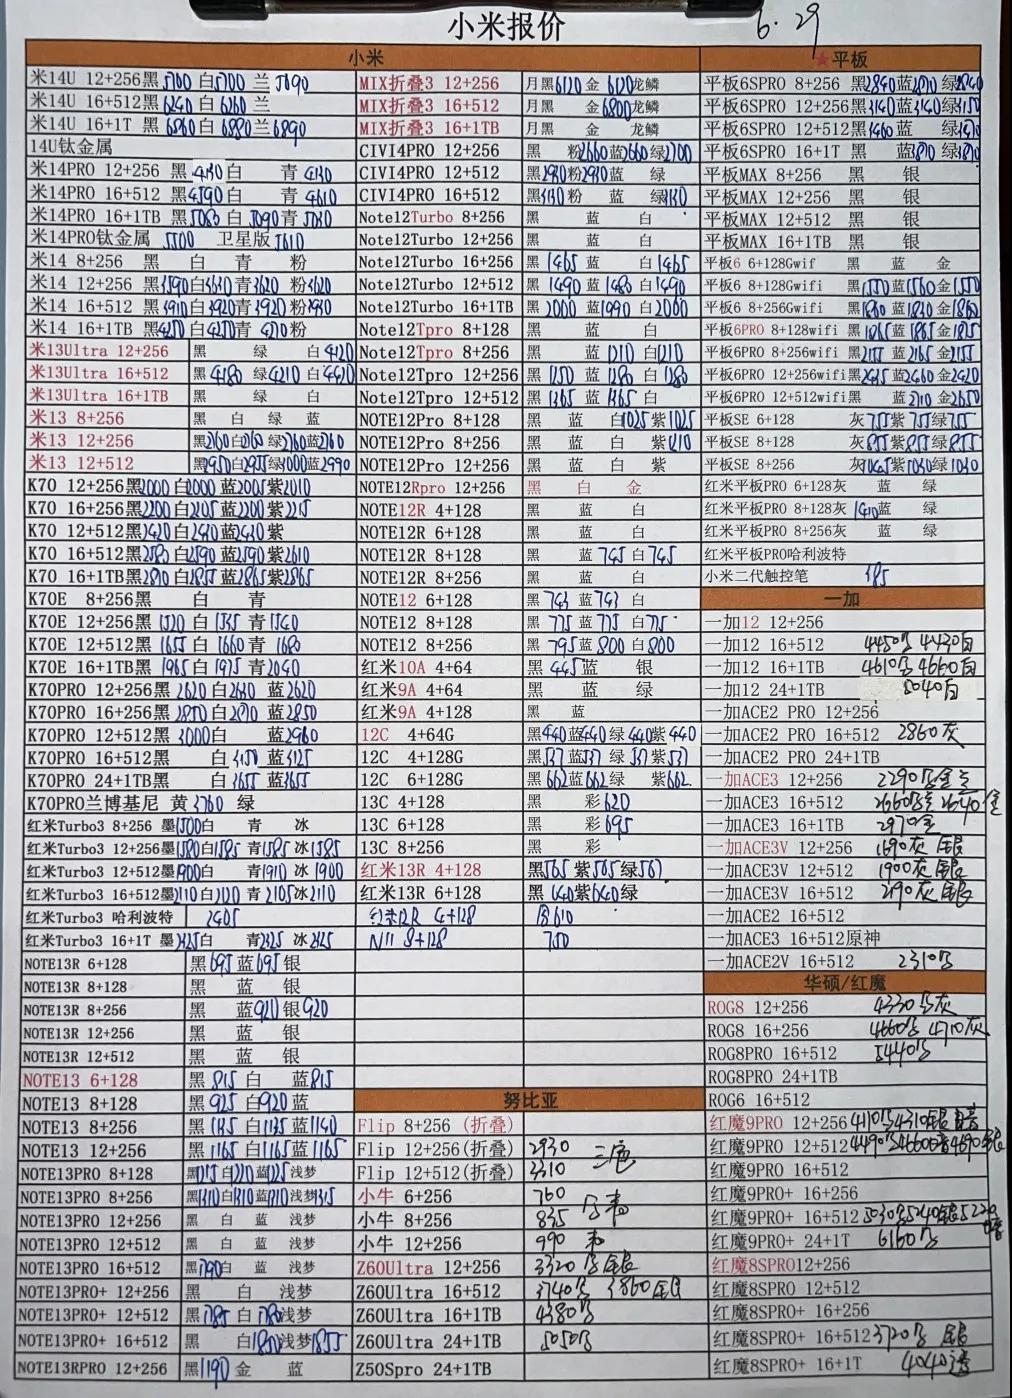 小米报价
6.29
小米
米14U 12+256黑5700 白5700 兰5690
米14U 16+512黑6240 白6260 兰
米14U 16+1T 黑6860白6880兰6890
14U钛金属
米14PRO 12+256 黑4130白 青4130
米14PRO 16+512 黑4590白 青4610
米14PRO 16+1TB 黑5083白5090青5030
米14PRO钛金属 5500 卫星版5610
米14 8+256 黑 白 青 粉
米14 12+256 黑3590白3630青3620 粉3620
米14 16+512 黑3910白3920青3920 粉3930
米14 16+1TB 黑4250白4250青4270粉
米13Ultra 12+256 黑 绿 白4120
米13Ultra 16+512 黑4180 绿4210 白4420
米13Ultra 16+1TB 黑 绿 白
米13 8+256 黑 白 绿 蓝
米13 12+256 黑2760白2760 绿2760蓝2760
米13 12+512 黑2950白2955绿3000蓝2990
K70 12+256黑2000 白2000 蓝2005紫2010
K70 16+256黑2200 白2205 蓝2200紫2215
K70 12+512黑2420白2430蓝2430紫
K70 16+512黑2580白2590 蓝2590紫2610
K70 16+1TB黑2870白2855蓝2865紫2865
K70E 8+256黑 白 青
K70E 12+256黑1520 白1535 青1540
K70E 12+512黑1655 白1660青1680
K70E 16+1TB黑1965白1975青2040
K70PRO 12+256黑2620白2630 蓝2620
K70PRO 16+256黑2850白2870 蓝2850
K70PRO 12+512黑3000白 蓝2960
K70PRO 16+512黑 白3150 蓝3125
K70PRO 24+1TB黑 白3655 蓝3655
K70PRO兰博基尼 黄3760 绿
红米Turbo3 8+256 墨1500白 青 冰
红米Turbo3 12+256墨1580白1585 青1585 冰1585
红米Turbo3 12+512墨1900白 青1910 冰1900
红米Turbo3 16+512墨2110白2100 青2105冰2110
红米Turbo3 哈利波特 2405
红米Turbo3 16+1T 墨2425白 青2325 冰2425
NOTE13R 6+128 黑695蓝695银
NOTE13R 8+128 黑 蓝 银
NOTE13R 8+256 黑 蓝920银920
NOTE13R 12+256 黑 蓝 银
NOTE13R 12+512 黑 蓝 银
NOTE13 6+128 黑815白 蓝815
NOTE13 8+128 黑925 白920蓝
NOTE13 8+256 黑1145白1135蓝1140
NOTE13 12+256 黑1165白1165蓝1165
NOTE13PRO 8+128 黑1215白1220蓝1225浅梦
NOTE13PRO 8+256 黑1310白1310蓝1310浅梦1315
NOTE13PRO 12+256 黑 白 蓝 浅梦
NOTE13PRO 12+512 黑 白 蓝 浅梦
NOTE13PRO 16+512 黑1790白 蓝 浅梦
NOTE13PRO+ 12+256 黑 白 浅梦
NOTE13PRO+ 12+512 黑1785 白1780浅梦
NOTE13PRO+ 16+512 黑 白1850浅梦1855
NOTE13RPRO 12+256 黑1190金 蓝
MIX折叠3 12+256 月黑6120 金 6120龙鳞
MIX折叠3 16+512 月黑 金6800龙鳞
MIX折叠3 16+1TB 月黑 金 龙鳞
CIVI4PRO 12+256 黑 粉2660蓝2660绿2700
CIVI4PRO 12+512 黑2930粉2930蓝 绿
CIVI4PRO 16+512 黑3130粉 蓝 绿3130
Note12Turbo 8+256 黑 蓝 白
Note12Turbo 12+256 黑 蓝 白
Note12Turbo 16+256 黑1465蓝 白1465
Note12Turbo 12+512 黑1490蓝1480白1490
Note12Turbo 16+1TB 黑2000蓝1990 白2000
Note12Tpro 8+128 黑 蓝 白
Note12Tpro 8+256 黑 蓝1210 白1210
Note12Tpro 12+256 黑1250蓝1280白1280
Note12Tpro 12+512 黑1365蓝1365白
NOTE12Pro 8+128 黑 蓝 白1025紫1025
NOTE12Pro 8+256 黑 蓝 白 紫1210
NOTE12Pro 12+256 黑 蓝 白 紫
NOTE12Rpro 12+256 黑 白 金
NOTE12R 4+128 黑 蓝 白
NOTE12R 6+128 黑 蓝 白
NOTE12R 8+128 黑 蓝745白745
NOTE12R 8+256 黑 蓝 白
NOTE12 6+128 黑743蓝743 白
NOTE12 8+128 黑775蓝775 白775
NOTE12 8+256 黑795蓝800白800
红米10A 4+64 黑445蓝 银
红米9A 4+64 黑 蓝 绿
红米9A 4+128 黑 蓝
12C 4+64G 黑440蓝440 绿440紫440
12C 4+128G 黑537蓝537 绿537紫537
12C 6+128G 黑662蓝662绿 紫662
13C 4+128 黑 彩620
13C 6+128 黑 彩695
13C 8+256 黑 彩
红米13R 4+128 黑565紫565绿567
红米13R 6+128 黑640紫640绿
红米12R 4+128 610
N11 8+128 750
努比亚
Flip 8+256 (折叠)
Flip 12+256(折叠) 2930 三色
Flip 12+512(折叠) 3310
小牛 6+256 760
小牛 8+256 835
小牛 12+256 990
Z60Ultra 12+256 3320
Z60Ultra 16+512 3740 3860
Z60Ultra 16+1TB 4380
Z60Ultra 24+1TB 5050
Z50Spro 24+1TB
★平板
平板6SPRO 8+256 黑2840蓝2810绿2840
平板6SPRO 12+256黑3140蓝3140绿3150
平板6SPRO 12+512黑3460蓝 绿3470
平板6SPRO 16+1T 黑 蓝3870绿3870
平板MAX 8+256 黑 银
平板MAX 12+256 黑 银
平板MAX 12+512 黑 银
平板MAX 16+1TB 黑 银
平板6 6+128Gwif 黑 蓝 金
平板6 8+128Gwifi 黑1550蓝1560金1550
平板6 8+256Gwifi 黑1860蓝1820金1860
平板6PRO 8+128wifi 黑1865蓝1865金1875
平板6PRO 8+256wifi 黑2155蓝2165金2155
平板6PRO 12+256wifi黑2435蓝2460金2420
平板6PRO 12+512wifi黑 蓝2710金2650
平板SE 6+128 灰755紫755绿755
平板SE 8+128 灰855紫855绿855
平板SE 8+256 灰1045紫1030绿1030
红米平板PRO 6+128灰 蓝 绿
红米平板PRO 8+128灰1410蓝 绿
红米平板PRO 8+256灰 蓝 绿
红米平板PRO哈利波特
小米二代触控笔 385
一加
一加12 12+256
一加12 16+512 4450 4430白
一加12 16+1TB 4610 4660白
一加12 24+1TB 5040白
一加ACE2 PRO 12+256
一加ACE2 PRO 16+512 2860灰
一加ACE2 PRO 24+1TB
一加ACE3 12+256 2290
一加ACE3 16+512 2660 2640金
一加ACE3 16+1TB 2970金
一加ACE3V 12+256 1690灰 银
一加ACE3V 12+512 1900灰 银
一加ACE3V 16+512 2190灰 银
一加ACE2 16+512
一加ACE3 16+512原神
一加ACE2V 16+512 2310
华硕/红魔
ROG8 12+256 4330 灰
ROG8 16+256 4660 4710灰
ROG8PRO 16+512 5440
ROG8PRO 24+1TB
ROG6 16+512
红魔9PRO 12+256 4110 4310银
红魔9PRO 12+512 4490 4660 4690银
红魔9PRO 16+512
红魔9PRO+ 16+256
红魔9PRO+ 16+512 5030 5240银
红魔9PRO+ 24+1T 6160
红魔8SPRO12+256
红魔8SPRO 12+512
红魔8SPRO+ 16+256
红魔8SPRO+ 16+512 3720 银
红魔8SPRO+ 16+1T 4040透